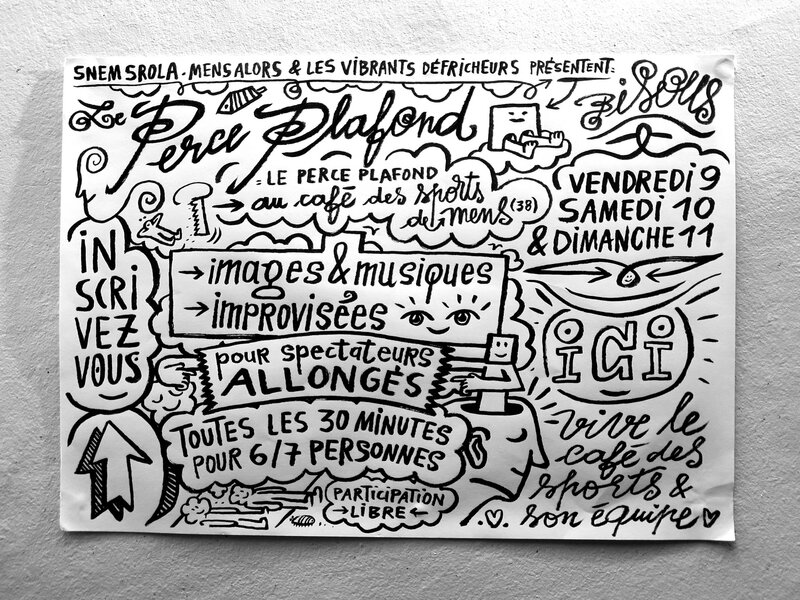 SNEM SROLA. MENS ALORS & LES VIBRANTS DÉFRICHEURS PRÉSENTENT:
Le Perce Plafond
Bisous
= LE PERCE PLAFOND
au café des sports
de mens (38)
VENDREDI 9
SAMEDI 10
& DIMANCHE 11
iN
SCRi
VEZ
VOUS
→ images & musiques
→ iMPROViSÉES
pour spectateurs
ALLONGÉS
iCi
TOUTES LES 30 MINUTES
POUR 6/7 PERSONNES
PARTICIPATION
→ LIBRE ←
vive le
café des
sports &
son équipe ♡